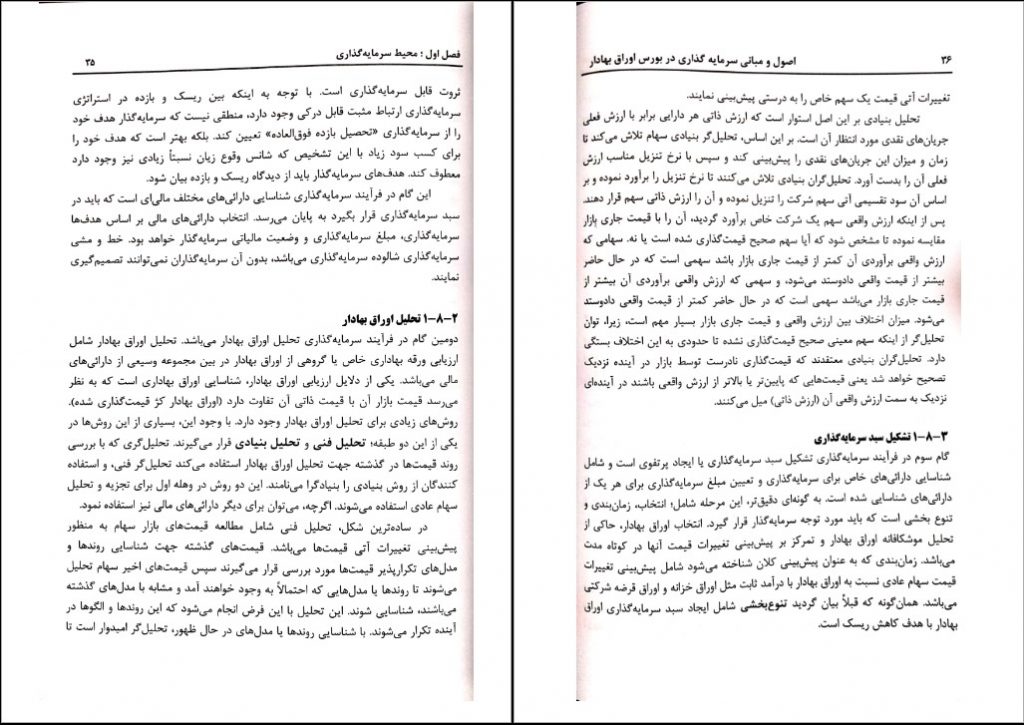 فصل اول : محیط سرمایه‌گذاری ۳۵
ثروت قابل سرمایه‌گذاری است. با توجه به اینکه بین ریسک و بازده در استراتژی
سرمایه‌گذاری ارتباط مثبت قابل درکی وجود دارد، منطقی نیست که سرمایه‌گذار هدف خود
را از سرمایه‌گذاری «تحصیل بازده فوق‌العاده» تعیین کند. بلکه بهتر است که هدف خود را
برای کسب سود زیاد با این تشخیص که شانس وقوع زیان نسبتاً زیادی نیز وجود دارد
معطوف کند. هدف‌های سرمایه‌گذار باید از دیدگاه ریسک و بازده بیان شود.
این گام در فرآیند سرمایه‌گذاری شناسایی دارائی‌های مختلف مالی‌ای است که باید در
سبد سرمایه‌گذاری قرار بگیرد به پایان می‌رسد. انتخاب دارائی‌های مالی بر اساس هدف‌ها
سرمایه‌گذاری، مبلغ سرمایه‌گذاری و وضعیت مالیاتی سرمایه‌گذار خواهد بود. خط و مشی
سرمایه‌گذاری شالوده سرمایه‌گذاری می‌باشد، بدون آن سرمایه‌گذاران نمی‌توانند تصمیم‌گیری
نمایند.
۲-۸-۱ تحلیل اوراق بهادار
دومین گام در فرآیند سرمایه‌گذاری تحلیل اوراق بهادار می‌باشد. تحلیل اوراق بهادار شامل
ارزیابی ورقه بهاداری خاص یا گروهی از اوراق بهادار در بین مجموعه وسیعی از دارائی‌های
مالی می‌باشد. یکی از دلایل ارزیابی اوراق بهادار، شناسایی اوراق بهاداری است که به نظر
می‌رسد قیمت بازار آن با قیمت ذاتی آن تفاوت دارد (اوراق بهادار کژ قیمت‌گذاری شده).
روش‌های زیادی برای تحلیل اوراق بهادار وجود دارد. با وجود این، بسیاری از این روش‌ها در
یکی از این دو طبقه؛ تحلیل فنی و تحلیل بنیادی قرار می‌گیرند. تحلیل‌گری که با بررسی
روند قیمت‌ها در گذشته جهت تحلیل اوراق بهادار استفاده می‌کند تحلیل‌گر فنی، و استفاده
کنندگان از روش بنیادی را بنیادگرا می‌نامند. این دو روش در وهله اول برای تجزیه و تحلیل
سهام عادی استفاده می‌شوند. اگرچه، می‌توان برای دیگر دارائی‌های مالی نیز استفاده نمود.
در ساده‌ترین شکل، تحلیل فنی شامل مطالعه قیمت‌های بازار سهام به منظور
پیش‌بینی تغییرات آتی قیمت‌ها می‌باشد. قیمت‌های گذشته جهت شناسایی روندها و
مدل‌های تکرارپذیر قیمت‌ها مورد بررسی قرار می‌گیرند سپس قیمت‌های اخیر سهام تحلیل
می‌شوند تا روندها یا مدل‌هایی که احتمالاً به وجود خواهند آمد و مشابه با مدل‌های گذشته
می‌باشند، شناسایی شوند. این تحلیل با این فرض انجام می‌شود که این روندها و الگوها در
آینده تکرار می‌شوند. با شناسایی روندها یا مدل‌های در حال ظهور، تحلیل‌گر امیدوار است تا
۳۶ اصول و مبانی سرمایه گذاری در بورس اوراق بهادار
تغییرات آتی قیمت یک سهم خاص را به درستی پیش‌بینی نمایند.
تحلیل بنیادی بر این اصل استوار است که ارزش ذاتی هر دارایی برابر با ارزش فعلی
جریان‌های نقدی مورد انتظار آن است. بر این اساس، تحلیل‌گر بنیادی سهام تلاش می‌کند تا
زمان و میزان این جریان‌های نقدی را پیش‌بینی کند و سپس با نرخ تنزیل مناسب ارزش
فعلی آن را بدست آورد. تحلیل‌گران بنیادی تلاش می‌کنند تا نرخ تنزیل را برآورد نموده و بر
اساس آن سود تقسیمی آتی سهم شرکت را تنزیل نموده و آن را ارزش ذاتی سهم قرار دهند.
پس از اینکه ارزش واقعی سهم یک شرکت خاص برآورد گردید، آن را با قیمت جاری بازار
مقایسه نموده تا مشخص شود که آیا سهم صحیح قیمت‌گذاری شده است یا نه. سهامی که
ارزش واقعی برآوردی آن کمتر از قیمت جاری بازار باشد سهمی است که در حال حاضر
بیشتر از قیمت واقعی دادوستد می‌شود، و سهمی که ارزش واقعی برآوردی آن بیشتر از
قیمت جاری بازار می‌باشد سهمی است که در حال حاضر کمتر از قیمت واقعی دادوستد
می‌شود. میزان اختلاف بین ارزش واقعی و قیمت جاری بازار بسیار مهم است، زیرا، توان
تحلیل‌گر از اینکه سهم معینی صحیح قیمت‌گذاری نشده تا حدودی به این اختلاف بستگی
دارد. تحلیل‌گران بنیادی معتقدند که قیمت‌گذاری نادرست توسط بازار در آینده نزدیک
تصحیح خواهد شد یعنی قیمت‌هایی که پایین‌تر یا بالاتر از ارزش واقعی باشند در آینده‌ای
نزدیک به سمت ارزش واقعی آن (ارزش ذاتی) میل می‌کنند.
۳-۸-۱ تشکیل سبد سرمایه‌گذاری
گام سوم در فرآیند سرمایه‌گذاری تشکیل سبد سرمایه‌گذاری یا ایجاد پرتفوی است و شامل
شناسایی دارائی‌های خاص برای سرمایه‌گذاری و تعیین مبلغ سرمایه‌گذاری برای هر یک از
دارائی‌های شناسایی شده است. به گونه‌ای دقیق‌تر، این مرحله شامل؛ انتخاب، زمان‌بندی و
تنوع بخشی است که باید مورد توجه سرمایه‌گذار قرار گیرد. انتخاب اوراق بهادار، حاکی از
تحلیل موشکافانه اوراق بهادار و تمرکز بر پیش‌بینی تغییرات قیمت آنها در کوتاه مدت
می‌باشد. زمان‌بندی که به عنوان پیش‌بینی کلان شناخته می‌شود شامل پیش‌بینی تغییرات
قیمت سهام عادی نسبت به اوراق بهادار با درآمد ثابت مثل اوراق خزانه و اوراق قرضه شرکتی
می‌باشد. همان‌گونه که قبلاً بیان گردید تنوع‌بخشی شامل ایجاد سبد سرمایه‌گذاری اوراق
بهادار با هدف کاهش ریسک است.